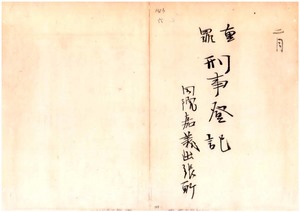 二月
重罪
刑事登記
同院嘉義出張所